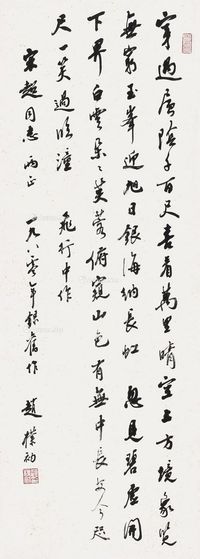 穿過層陰千百尺喜看萬里晴空上方境象
無窮玉峯迎旭日銀海納長虹 忽見碧虛開
下界白雲朵朵芙蓉俯窺山色有無中長安今咫
尺一笑過臨潼
飛行中作
宋超同志兩正
一九八〇年錄舊作 趙樸初